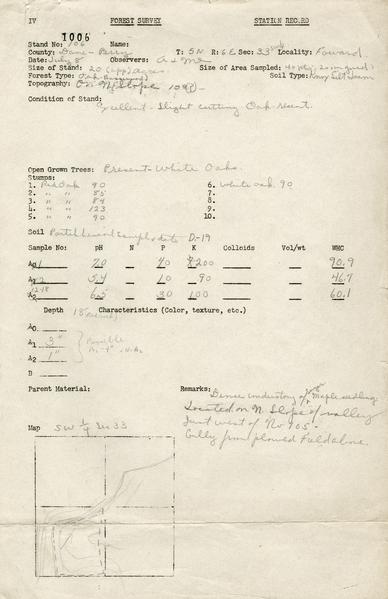 IV FOREST SURVEY STATION RECORD
1006
Stand No: 106 Name:
County: Dane - Perry T: 5 N R: 6 E Sec: 33 Locality: Foward
Date: July 8 Observers: A + Mc
Size of Stand: 20 (app) acres Size of Area Sampled:
Forest Type: Oak Soil Type: Knox Silt Loam
Topography: On N. Slope
Condition of Stand:
Excellent - Slight cutting Oak recent.
Open Grown Trees: Present - White Oaks.
Stumps:
1. Red Oak 90 6. White oak 90
2. " " 55 7.
3. " " 84 8.
4. " " 123 9.
5. " " 90 10.
Soil D-19
Sample No: pH N P K Colloids Vol/wt WHC
A₁ 7.0 40 200 90.9
5.4 10 90 46.7
12-18
A₂ 6.5 30 100 60.1
Depth Characteristics (Color, texture, etc.)
A₀
A₁ 3"
A₂ 1"
Possible
B
Parent Material: Remarks:
Dense understory of Maple seedling
Located on N. Slope of valley
Just west of No 105.
Gully from plowed field above.
Map SW 1/4 Sec 33